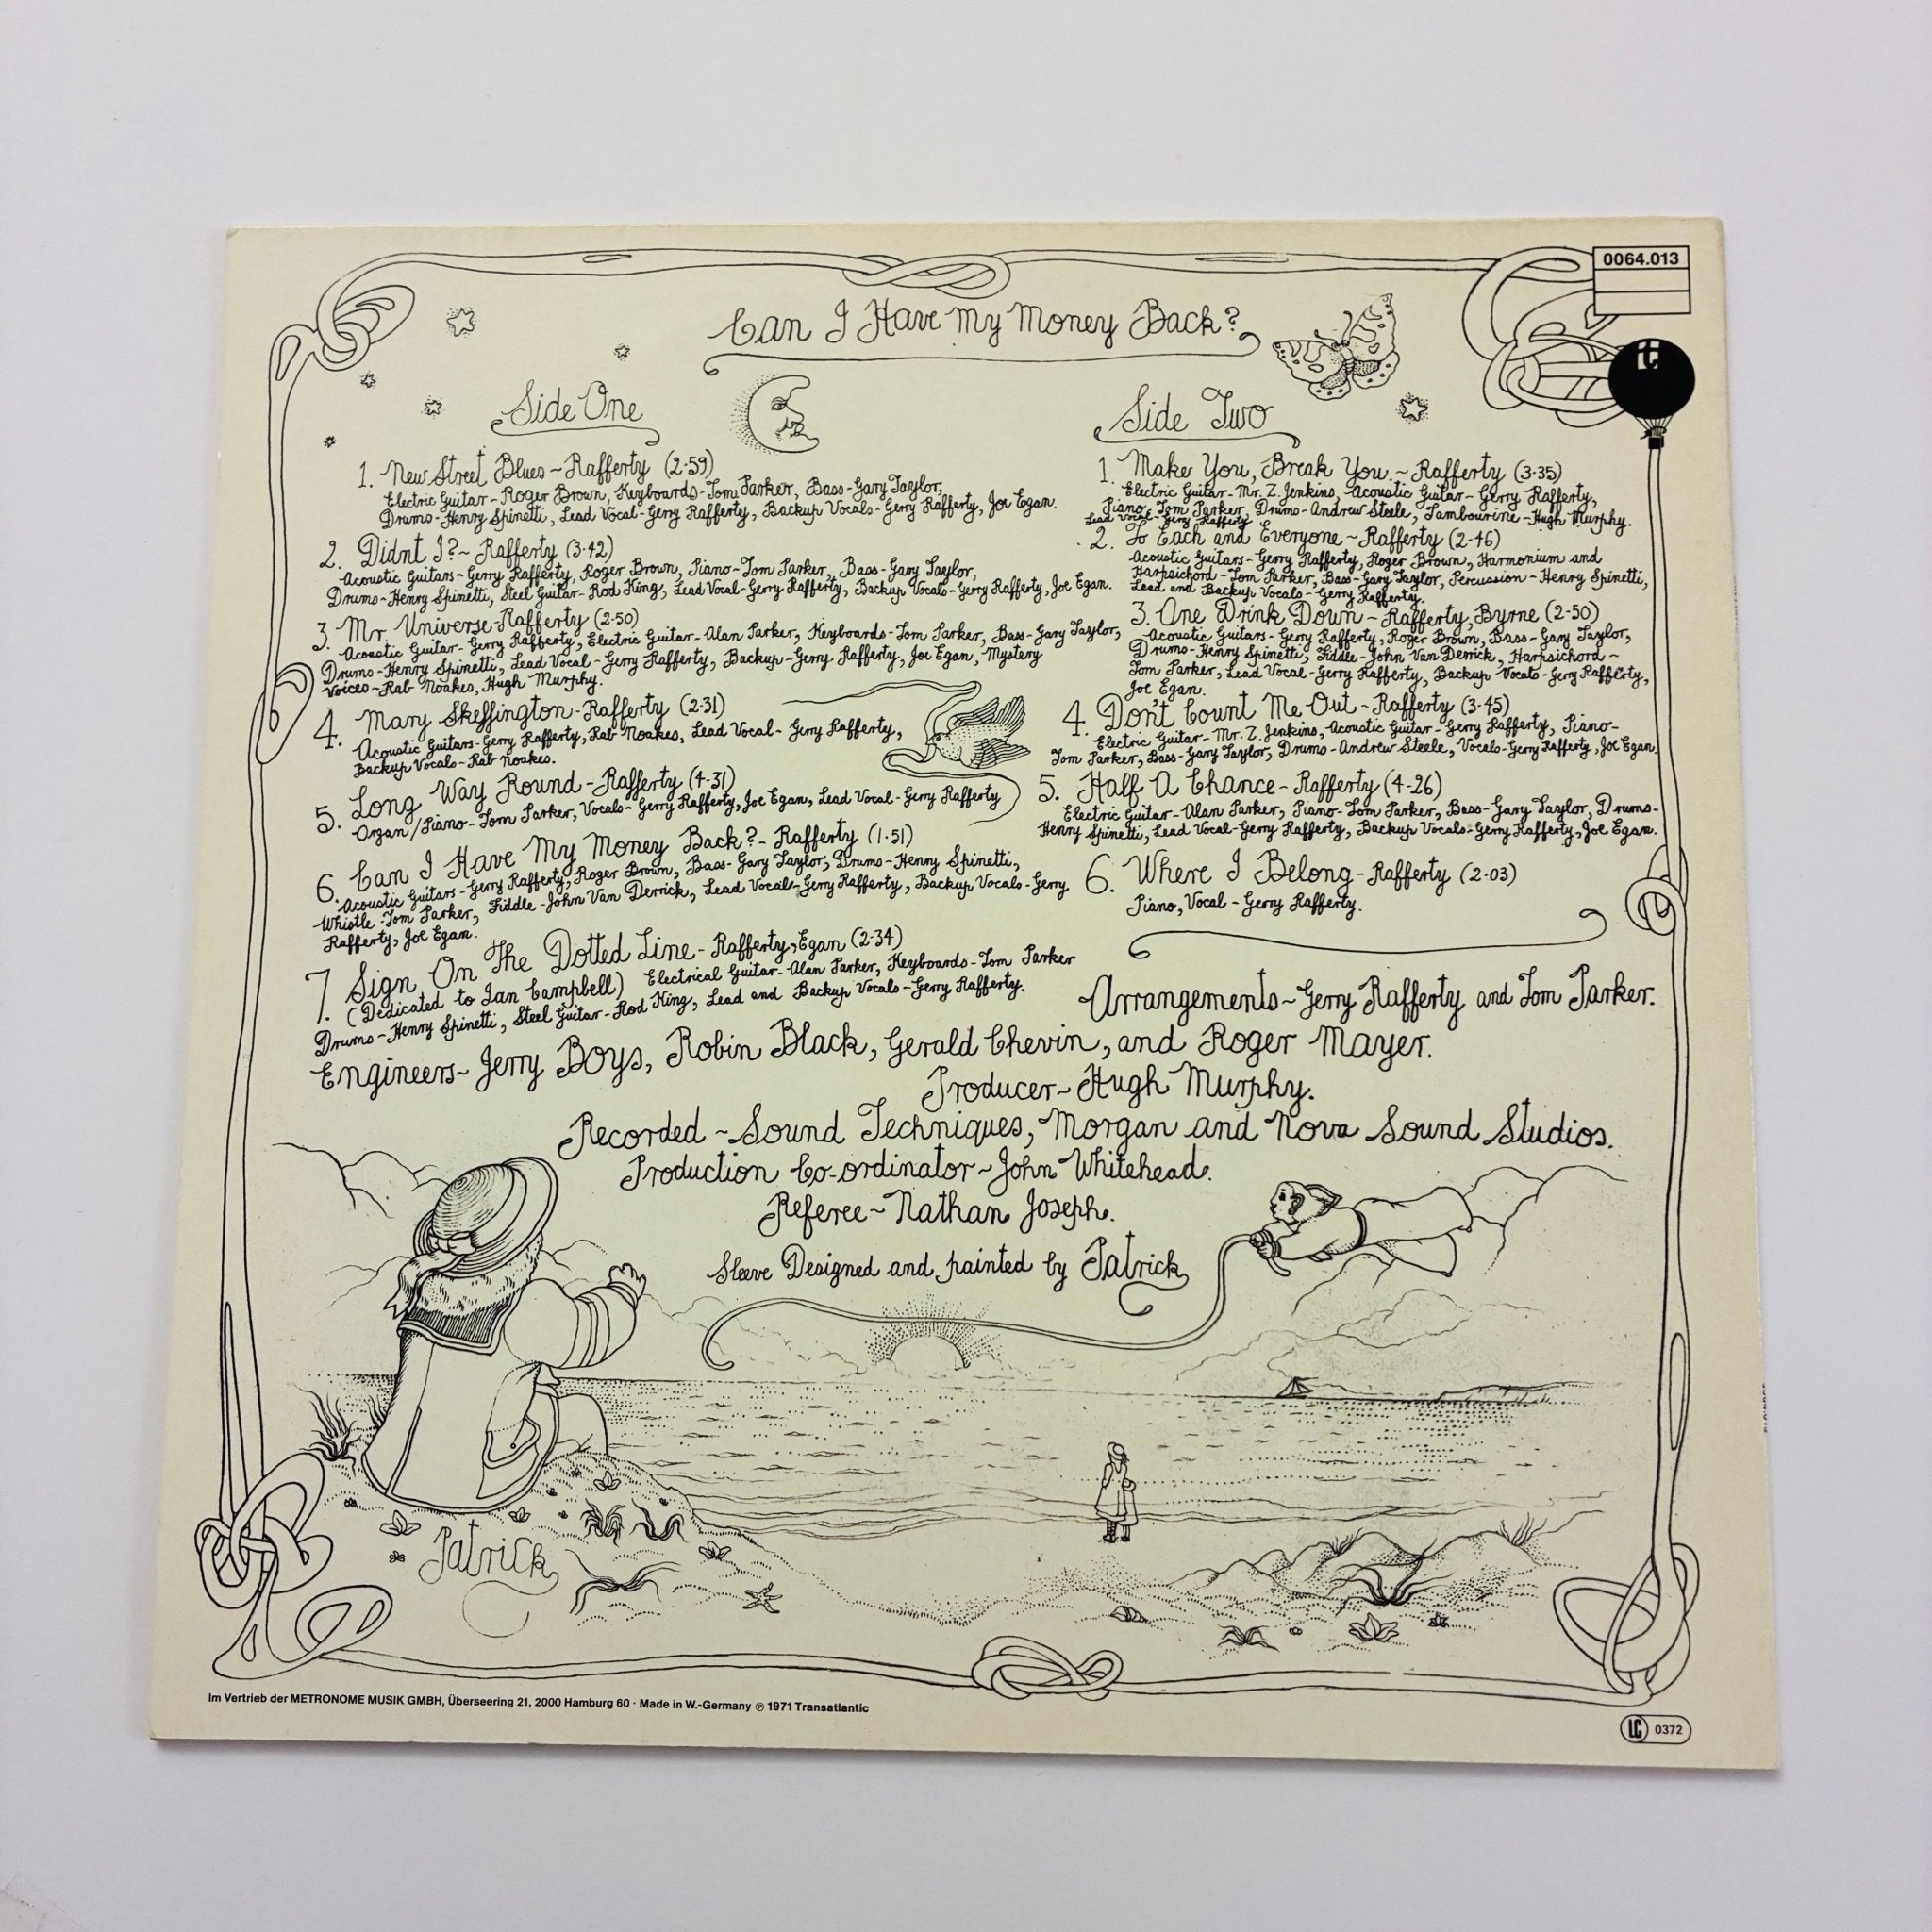 0064.013
Can I Have My Money Back?
it
Side One
1. New Street Blues ~ Rafferty (2·59)
Electric Guitar - Roger Brown, Keyboards - Tom Parker, Bass - Gary Taylor,
Drums - Henry Spinetti, Lead Vocal - Gerry Rafferty, Backup Vocals - Gerry Rafferty, Joe Egan.
2. Didnt I? ~ Rafferty (3·42)
Acoustic Guitars - Gerry Rafferty, Roger Brown, Piano - Tom Parker, Bass - Gary Taylor,
Drums - Henry Spinetti, Steel Guitar - Rod King, Lead Vocal - Gerry Rafferty, Backup Vocals - Gerry Rafferty, Joe Egan.
3. Mr. Universe - Rafferty (2·50)
Acoustic Guitar - Gerry Rafferty, Electric Guitar - Alan Parker, Keyboards - Tom Parker, Bass - Gary Taylor,
Drums - Henry Spinetti, Lead Vocal - Gerry Rafferty, Backup - Gerry Rafferty, Joe Egan, Mystery
Voices - Rab Noakes, Hugh Murphy.
4. Mary Skeffington - Rafferty (2·31)
Acoustic Guitars - Gerry Rafferty, Rab Noakes, Lead Vocal - Gerry Rafferty,
Backup Vocals - Rab Noakes.
5. Long Way Round - Rafferty (4·31)
Organ/Piano - Tom Parker, Vocals - Gerry Rafferty, Joe Egan, Lead Vocal - Gerry Rafferty
6. Can I Have My Money Back? - Rafferty (1·51)
Acoustic Guitars - Gerry Rafferty, Roger Brown, Bass - Gary Taylor, Drums - Henry Spinetti,
Whistle - Tom Parker, Fiddle - John Van Derrick, Lead Vocals - Gerry Rafferty, Backup Vocals - Gerry
Rafferty, Joe Egan.
7. Sign On The Dotted Line - Rafferty, Egan (2·34)
(Dedicated to Ian Campbell) Electrical Guitar - Alan Parker, Keyboards - Tom Parker
Drums - Henry Spinetti, Steel Guitar - Rod King, Lead and Backup Vocals - Gerry Rafferty.
Side Two
1. Make You, Break You ~ Rafferty (3·35)
Electric Guitar - Mr. Z. Jenkins, Acoustic Guitar - Gerry Rafferty,
Piano - Tom Parker, Drums - Andrew Steele, Tambourine - Hugh Murphy.
Lead Vocal - Gerry Rafferty
2. To Each and Everyone ~ Rafferty (2·46)
Acoustic Guitars - Gerry Rafferty, Roger Brown, Harmonium and
Harpsichord - Tom Parker, Bass - Gary Taylor, Percussion - Henry Spinetti,
Lead and Backup Vocals - Gerry Rafferty.
3. One Drink Down - Rafferty, Byrne (2·50)
Acoustic Guitars - Gerry Rafferty, Roger Brown, Bass - Gary Taylor,
Drums - Henry Spinetti, Fiddle - John Van Derrick, Harpsichord -
Tom Parker, Lead Vocal - Gerry Rafferty, Backup Vocals - Gerry Rafferty,
Joe Egan.
4. Don't Count Me Out - Rafferty (3·45)
Electric Guitar - Mr. Z. Jenkins, Acoustic Guitar - Gerry Rafferty, Piano -
Tom Parker, Bass - Gary Taylor, Drums - Andrew Steele, Vocals - Gerry Rafferty, Joe Egan.
5. Half A Chance - Rafferty (4·26)
Electric Guitar - Alan Parker, Piano - Tom Parker, Bass - Gary Taylor, Drums -
Henry Spinetti, Lead Vocal - Gerry Rafferty, Backup Vocals - Gerry Rafferty, Joe Egan.
6. Where I Belong - Rafferty (2·03)
Piano, Vocal - Gerry Rafferty.
Arrangements ~ Gerry Rafferty and Tom Parker.
Engineers ~ Jerry Boys, Robin Black, Gerald Chevin, and Roger Mayer.
Producer ~ Hugh Murphy.
Recorded ~ Sound Techniques, Morgan and Nova Sound Studios.
Production Co-ordinator ~ John Whitehead.
Referee ~ Nathan Joseph.
Sleeve Designed and painted by Patrick
Patrick
Im Vertrieb der METRONOME MUSIK GMBH, Überseering 21, 2000 Hamburg 60 · Made in W.-Germany ℗ 1971 Transatlantic
LC 0372